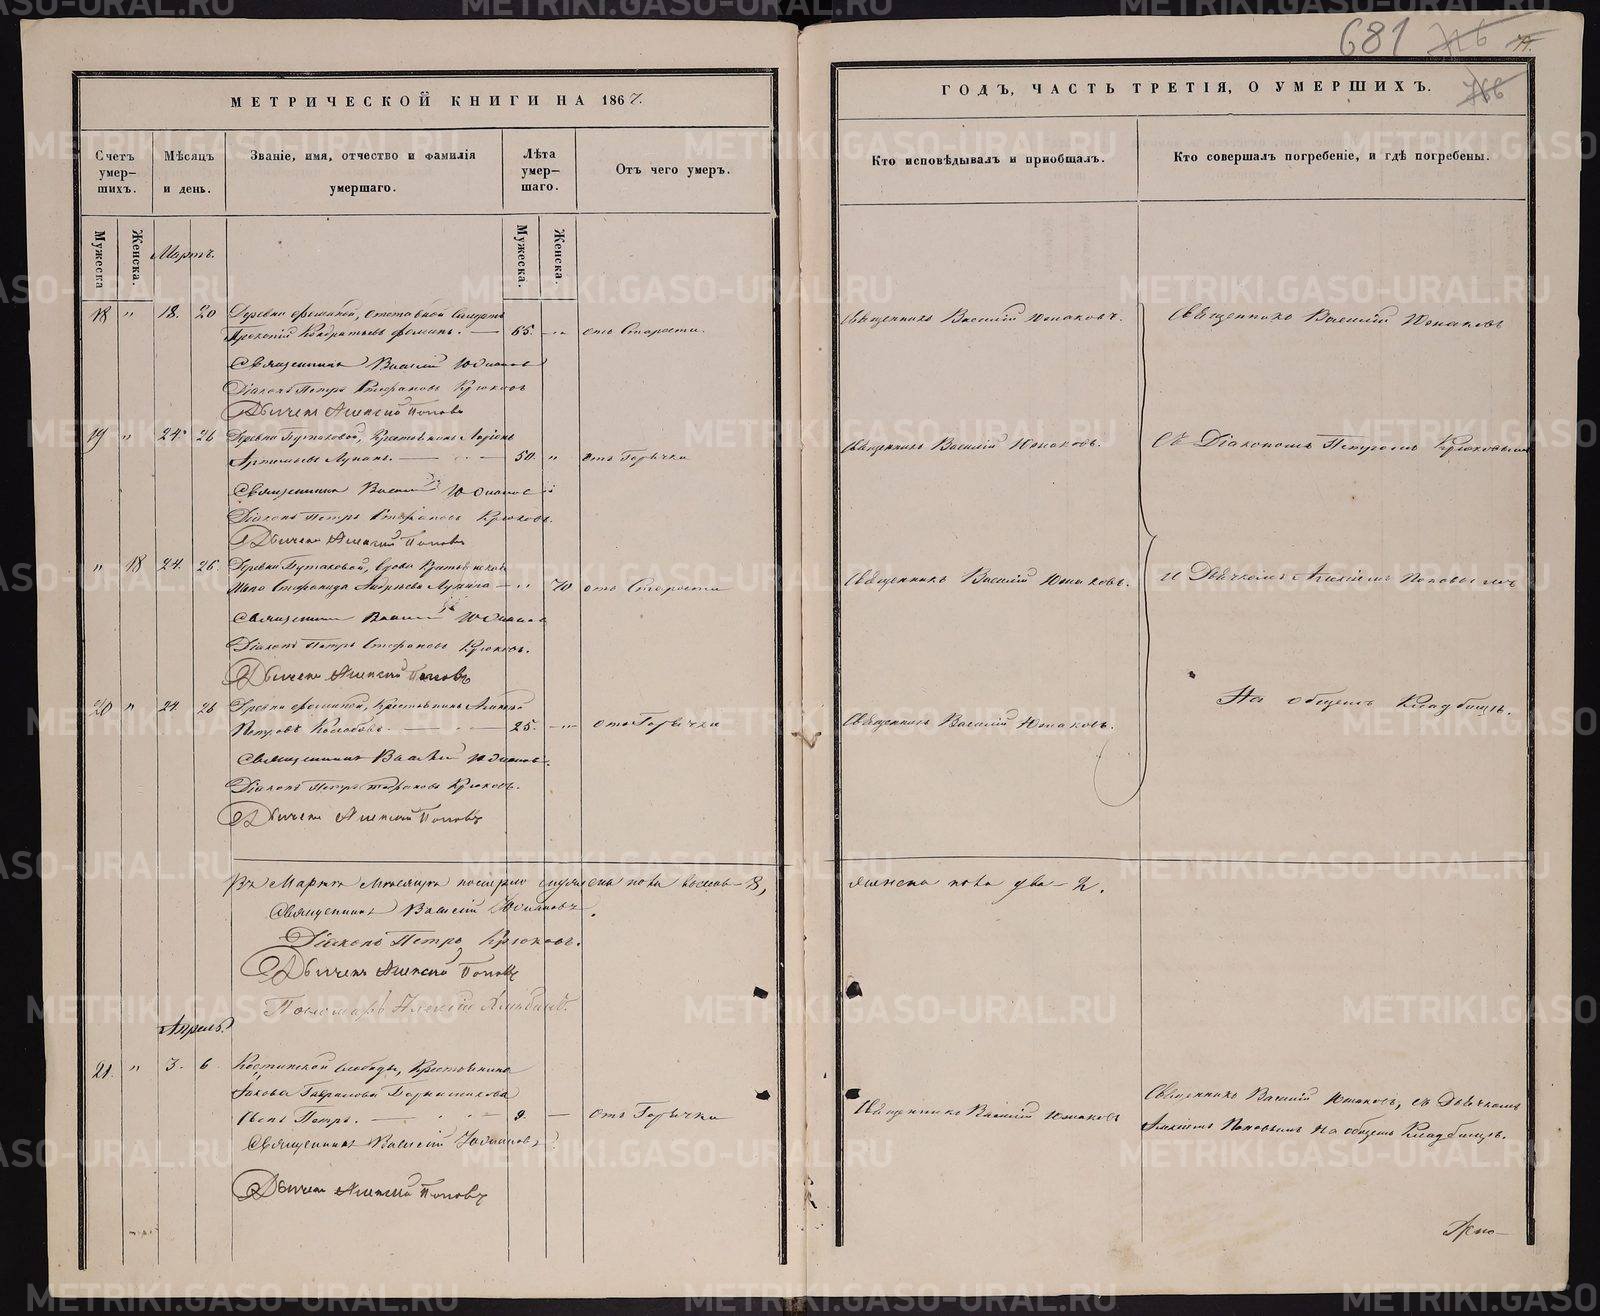 681
МЕТРИЧЕСКОЙ КНИГИ НА 1867.
ГОДЪ, ЧАСТЬ ТРЕТІЯ, О УМЕРШИХЪ.
Счетъ умер-шихъ.
Мѣсяцъ и день.
Званіе, имя, отчество и фамилія умершаго.
Лѣта умер-шаго.
Отъ чего умеръ.
Кто исповѣдывалъ и приобщалъ.
Кто совершалъ погребеніе, и гдѣ погребены.
Мужеска
Женска.
Мужеска.
Женска.
Мартъ.
18 " 18. 20 Деревни Ѳоминой, отставной Солдатъ
Прокопій Кондратьевъ Ѳоминъ. — 65. — отъ Старости.
Священникъ Василій Юшаковъ.
Священникъ Василій Юшаковъ
Священникъ Василій Юшаковъ
Діаконъ Петръ Стефановъ Крюковъ
Дьячекъ Алексій Поповъ
19 " 24. 26 Деревни Бутаковой, Крестьянинъ
50. " отъ Горячки
Священникъ Василій Юшаковъ.
Съ Діакономъ Петромъ Крюковымъ
Священникъ Василій Юшаковъ
Діаконъ Петръ Стефановъ Крюковъ.
Дьячекъ Алексій Поповъ
" 18 24. 26. Деревни Бутаковой, вдова Крестьянская
Жена Стефанида Андреева — " 70 отъ Старости
Священникъ Василій Юшаковъ.
и Дьячкомъ Алексіемъ Поповымъ
Священникъ Василій Юшаковъ
Діаконъ Петръ Стефановъ Крюковъ.
Дьячекъ Алексій Поповъ
20 " 24. 26 Деревни Ѳоминой, Крестьянинъ
Петровъ — 25. — отъ Горячки
Священникъ Василій Юшаковъ.
На общемъ Кладбищѣ.
Священникъ Василій Юшаковъ.
Діаконъ Петръ Стефановъ Крюковъ.
Дьячекъ Алексій Поповъ
Въ Мартѣ Мѣсяцѣ померло мужеска пола восемь — 8,
женска пола два — 2.
Священникъ Василій Юшаковъ.
Діаконъ Петръ Крюковъ.
Дьячекъ Алексій Поповъ
Пономарь Алексій
Апрель.
21. " 3. 6 Костинской слободы, Крестьянина
Іакова Гаврилова
Сынъ Петръ. — 9. — Отъ Горячки
Священникъ Василій Юшаковъ
Священникъ Василій Юшаковъ, съ Дьячкомъ
Алексіемъ Поповымъ На общемъ Кладбищѣ.
Священникъ Василій Юшаковъ
Дьячекъ Алексій Поповъ
METRIKI.GASO-URAL.RU